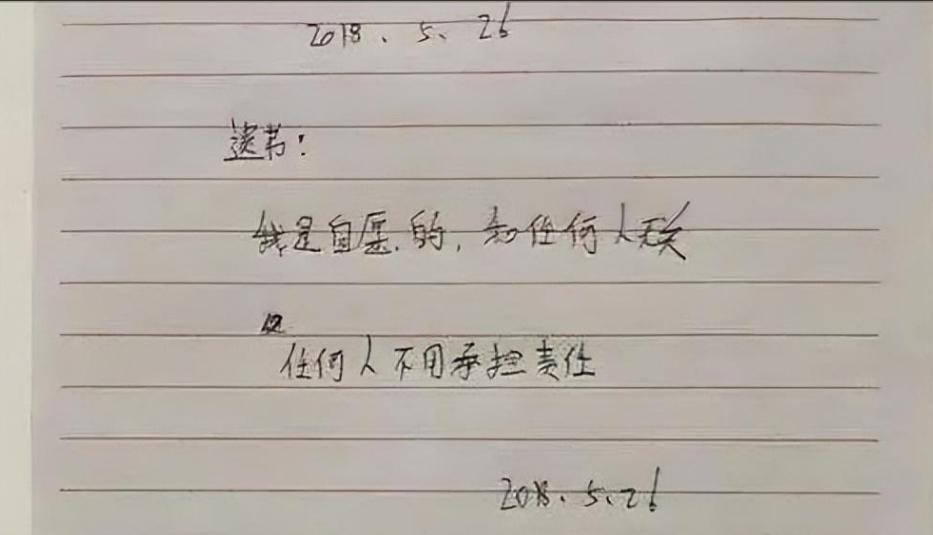 2018、5、26
遗书:
我是自愿的,和任何人无关
任何人不用承担责任
2018、5、26